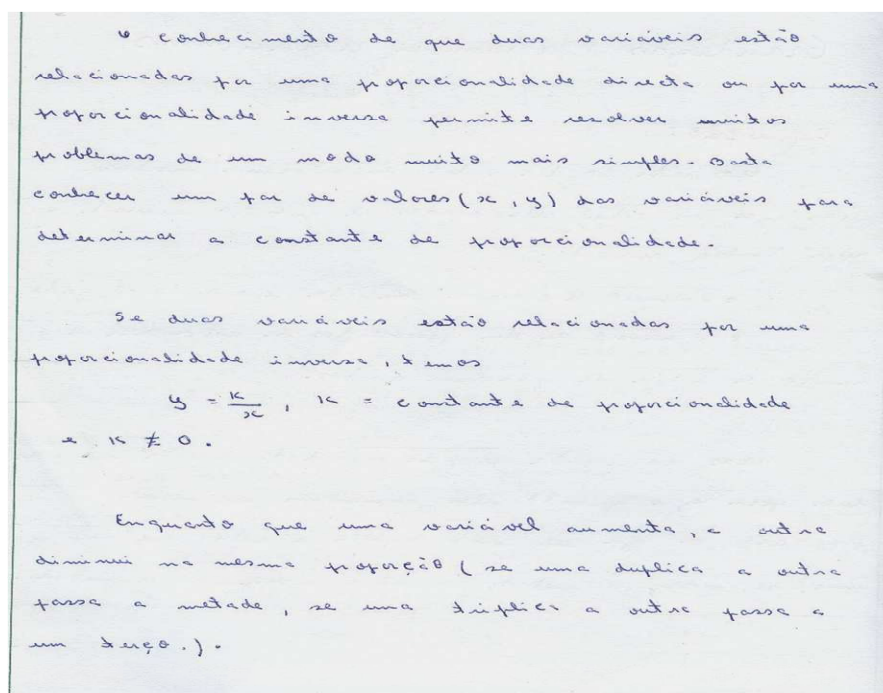 O conhecimento de que duas variáveis estão
relacionadas por uma proporcionalidade directa ou por uma
proporcionalidade inversa permite resolver muitos
problemas de um modo muito mais simples. Basta
conhecer um par de valores (x, y) das variáveis para
determinar a constante de proporcionalidade.
Se duas variáveis estão relacionadas por uma
proporcionalidade inversa, temos
y = k/x, k = constante de proporcionalidade
e k ≠ 0.
Enquanto que uma variável aumenta, a outra
diminui na mesma proporção (se uma duplica a outra
passa a metade, se uma triplica a outra passa a
um terço.).